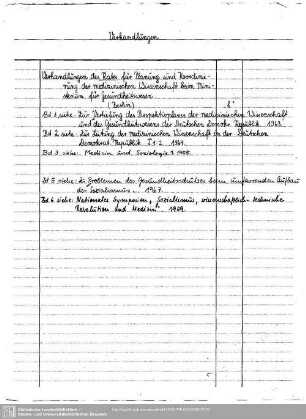 Verhandlungen
Verhandlungen des Rates für Planung und Koordinie-
rung der medizinischen Wissenschaft beim Mini-
sterium für Gesundheitswesen
(Berlin)
Bd 1 siehe: Zur Vertiefung des Perspektivplanes der medizinischen Wissenschaft
und des Gesundheitswesens der Deutschen Demokr. Republik 1963
Bd 2 siehe: Zur Leitung der medizinischen Wissenschaft in der Deutschen
Demokrat. Republik. T. 1-2 1964.
Bd 3 siehe: Medizin und Soziologie
Bd 5 siehe: Zu Problemen des Gesundheitsschutzes beim umfassenden Aufbau
des Sozialismus... 1967.
Bd 6 siehe: Nationales Symposium, Sozialismus, wissenschaftlich-technische
Revolution und Medizin". 1969.